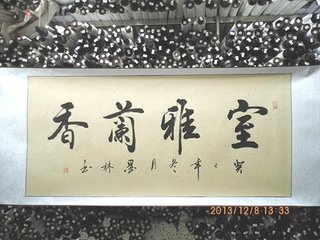 室雅蘭香
癸巳年冬月墨林書
2013/12/8 13:33